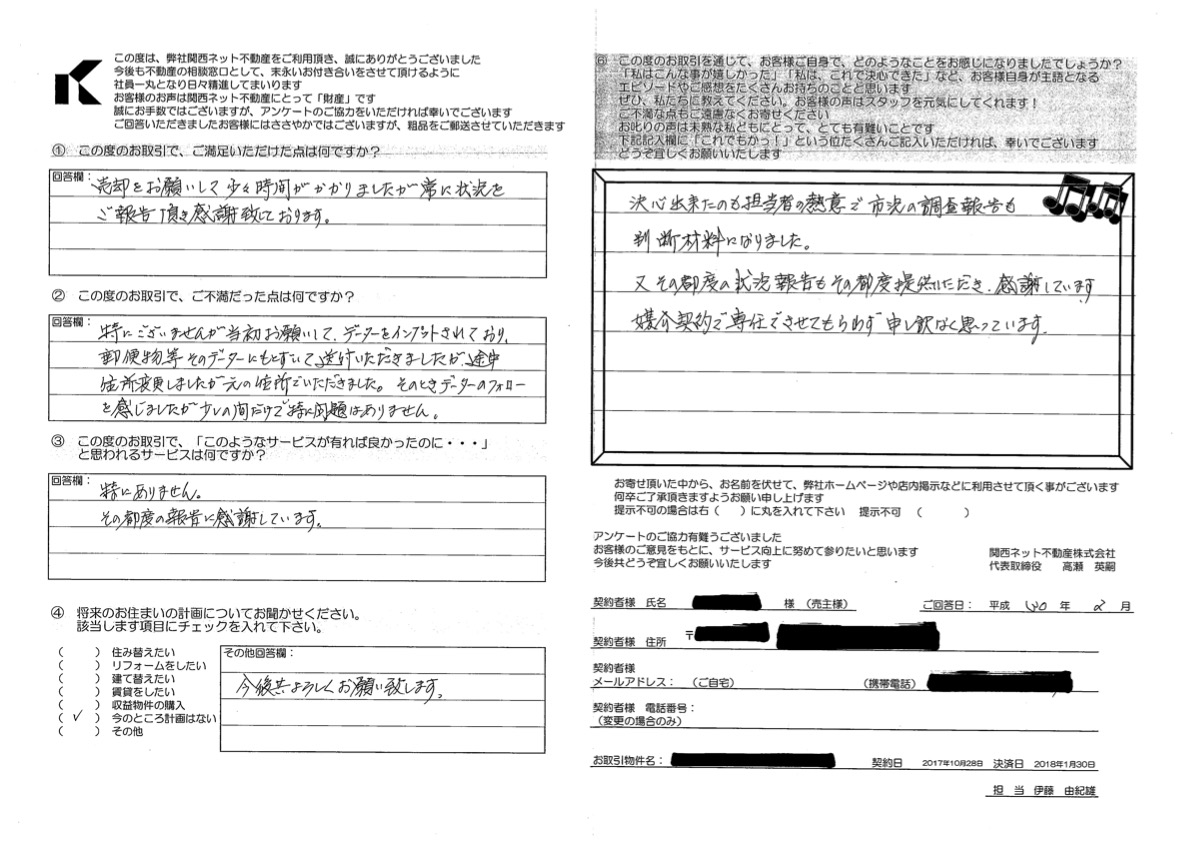 この度は、弊社関西ネット不動産をご利用頂き、誠にありがとうございました
今後も不動産の相談窓口として、末永いお付き合いをさせて頂けるように
社員一丸となり日々精進してまいります
お客様のお声は関西ネット不動産にとって「財産」です
誠にお手数ではございますが、アンケートのご協力をいただければ幸いでございます
ご回答いただきましたお客様にはささやかではございますが、粗品をご郵送させていただきます
① この度のお取引で、ご満足いただけた点は何ですか？
回答欄：
売却をお願いして少々時間がかかりましたが常に状況を
ご報告頂き感謝致しております。
② この度のお取引で、ご不満だった点は何ですか？
回答欄：
特にございませんが当初お願いして、データーをインプットされており、
郵便物等そのデーターにもとずいて送付いただきましたが、途中
住所変更しましたが元の住所でいただきました。そのときデーターのフォロー
を感じましたが少しの間だけで特に問題はありません。
③ この度のお取引で、「このようなサービスが有れば良かったのに・・・」
と思われるサービスは何ですか？
回答欄：
特にありません。
その都度の報告に感謝しています。
④ 将来のお住まいの計画についてお聞かせください。
該当します項目にチェックを入れて下さい。
（　　）住み替えたい
（　　）リフォームをしたい
（　　）建て替えたい
（　　）賃貸をしたい
（　　）収益物件の購入
（ ✓ ）今のところ計画はない
（　　）その他
その他回答欄：
今後共よろしくお願い致します。
⑥ この度のお取引を通じて、お客様ご自身で、どのようなことをお感じになりましたでしょうか？
「私はこんな事が嬉しかった」「私は、これで決心できた」など、お客様自身が主語となる
エピソードやご感想をたくさんお持ちのことと思います
ぜひ、私たちに教えてください。お客様の声はスタッフを元気にしてくれます！
ご不満な点もご遠慮なくお寄せください
お叱りの声は未熟な私どもにとって、とても有難いことです
下記記入欄に「これでもかっ！」という位たくさんご記入いただければ、幸いでございます
どうぞ宜しくお願いいたします
決心出来たのも担当者の熱意で市況の調査報告も
判断材料になりました。
又その都度の状況報告もその都度提供いただき、感謝しています
媒介契約で専任でさせてもらわず申し訳なく思っています。
お寄せ頂いた中から、お名前を伏せて、弊社ホームページや店内掲示などに利用させて頂く事がございます
何卒ご了承頂きますようお願い申し上げます
提示不可の場合は右（　　）に丸を入れて下さい　提示不可　（　　　）
アンケートのご協力有難うございました
お客様のご意見をもとに、サービス向上に努めて参りたいと思います
今後共どうぞ宜しくお願いいたします
関西ネット不動産株式会社
代表取締役　高瀬　英嗣
契約者様 氏名　様（売主様）　ご回答日：　平成 30 年 2 月
契約者様 住所　〒
契約者様
メールアドレス：　（ご自宅）　（携帯電話）
契約者様 電話番号：
（変更の場合のみ）
お取引物件名：　契約日　2017年10月28日　決済日　2018年1月30日
担 当　伊藤　由紀雄